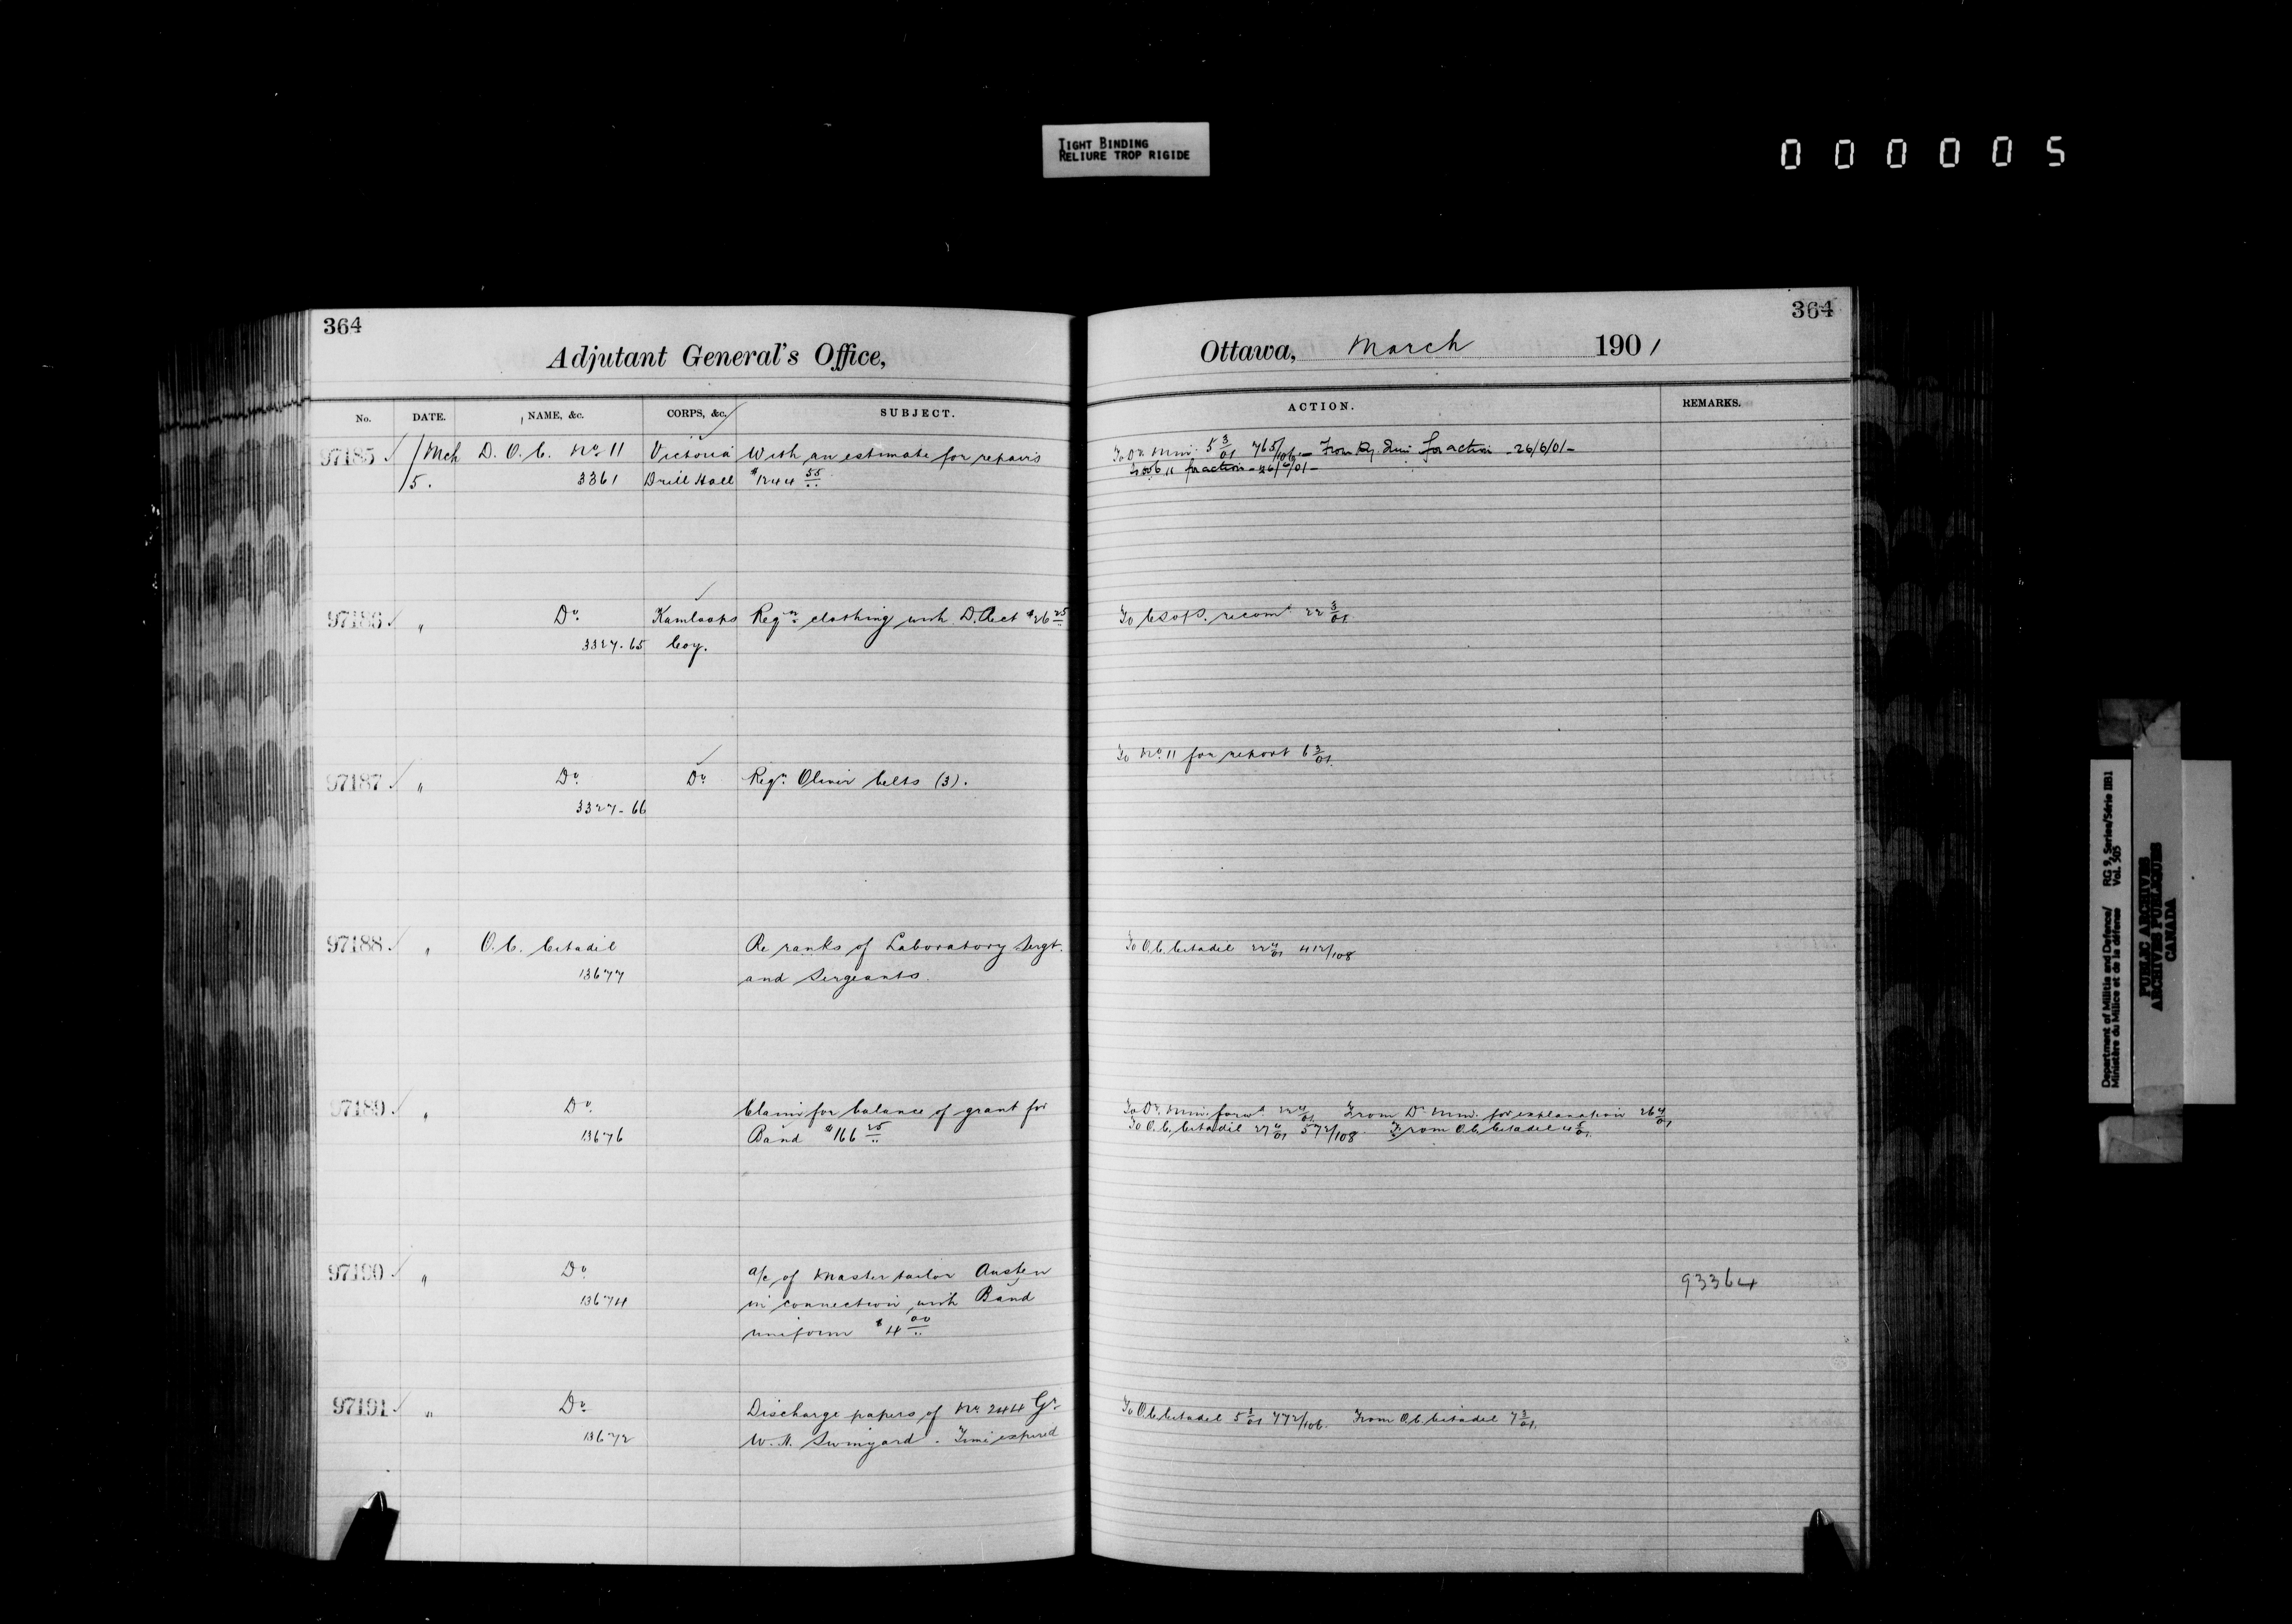 TIGHT BINDING
RELIURE TROP RIGIDE
000005
364
364
Adjutant General's Office,
Ottawa, March 1901
No. DATE. NAME, &c. CORPS, &c. SUBJECT.
ACTION. REMARKS.
97185 ✓ Mch D.O.C. No 11 Victoria With an estimate for repairs
5. 3361 Drill Hall $1244 55/..
To Dy. Min. 5 3/01 765/106. — From Dy. Min for action - 26/6/01 -
11 for action - 26/6/01 -
97186 ✓ " Do Kamloops Reqn clothing with D. Act $26 25/..
3327-65 Coy.
To C.S. of S. recomd 22 3/01
97187 ✓ " Do Do Reqn Oliver belts (3).
3327-66
To No 11 for report 6 3/01.
97188 ✓ " O.C. Citadel Re ranks of Laboratory Sergt.
13677 and Sergeants.
To O.C. Citadel 22 4/01 412/108
97189 ✓ " Do Claim for balance of grant for
13676 Band $166 25/..
To Dy. Min. forwd 22 4/01 From Dy. Min. for explanation 26 4/01
To O.C. Citadel 27 4/01 572/108 From O.C. Citadel 4 5/01.
97190 ✓ " Do a/c of Master tailor Austen
13674 in connection with Band
uniform $4 00/..
93364
97191 ✓ " Do Discharge papers of No 244 Gr.
13672 W.H. Swinyard. Time expired
To O.C. Citadel 5 3/01 772/106. From O.C. Citadel 7 3/01.
Department of Militia and Defence/ RG 9, Series/Série IIB1
Ministère du Milice et de la défense Vol. 505
PUBLIC ARCHIVES
ARCHIVES PUBLIQUES
CANADA